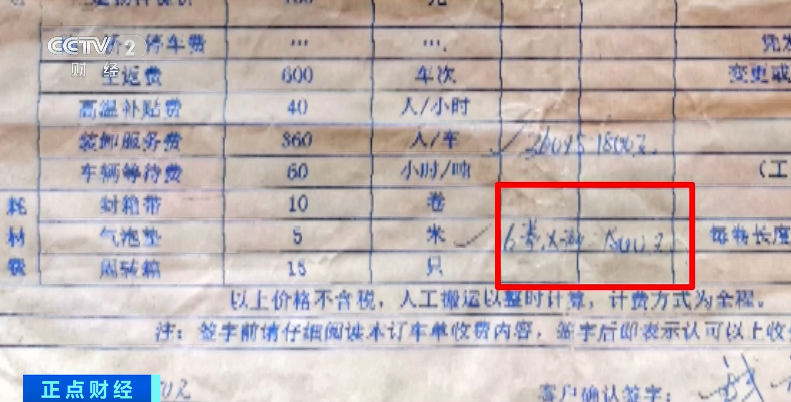 CCTV 2
财经
停车费 … ….
空返费 600 车次 变更或
高温补贴费 40 人/小时
装卸服务费 360 人/车
车辆等待费 60 小时/吨 (工
耗材费
封箱带 10 卷
气泡垫 5 米 每卷长度
周转箱 15 只
以上价格不含税，人工搬运以整时计算，计费方式为全程。
注：签字前请仔细阅读本订车单收费内容，签字后即表示认可以上收
客户确认签字：
正点财经